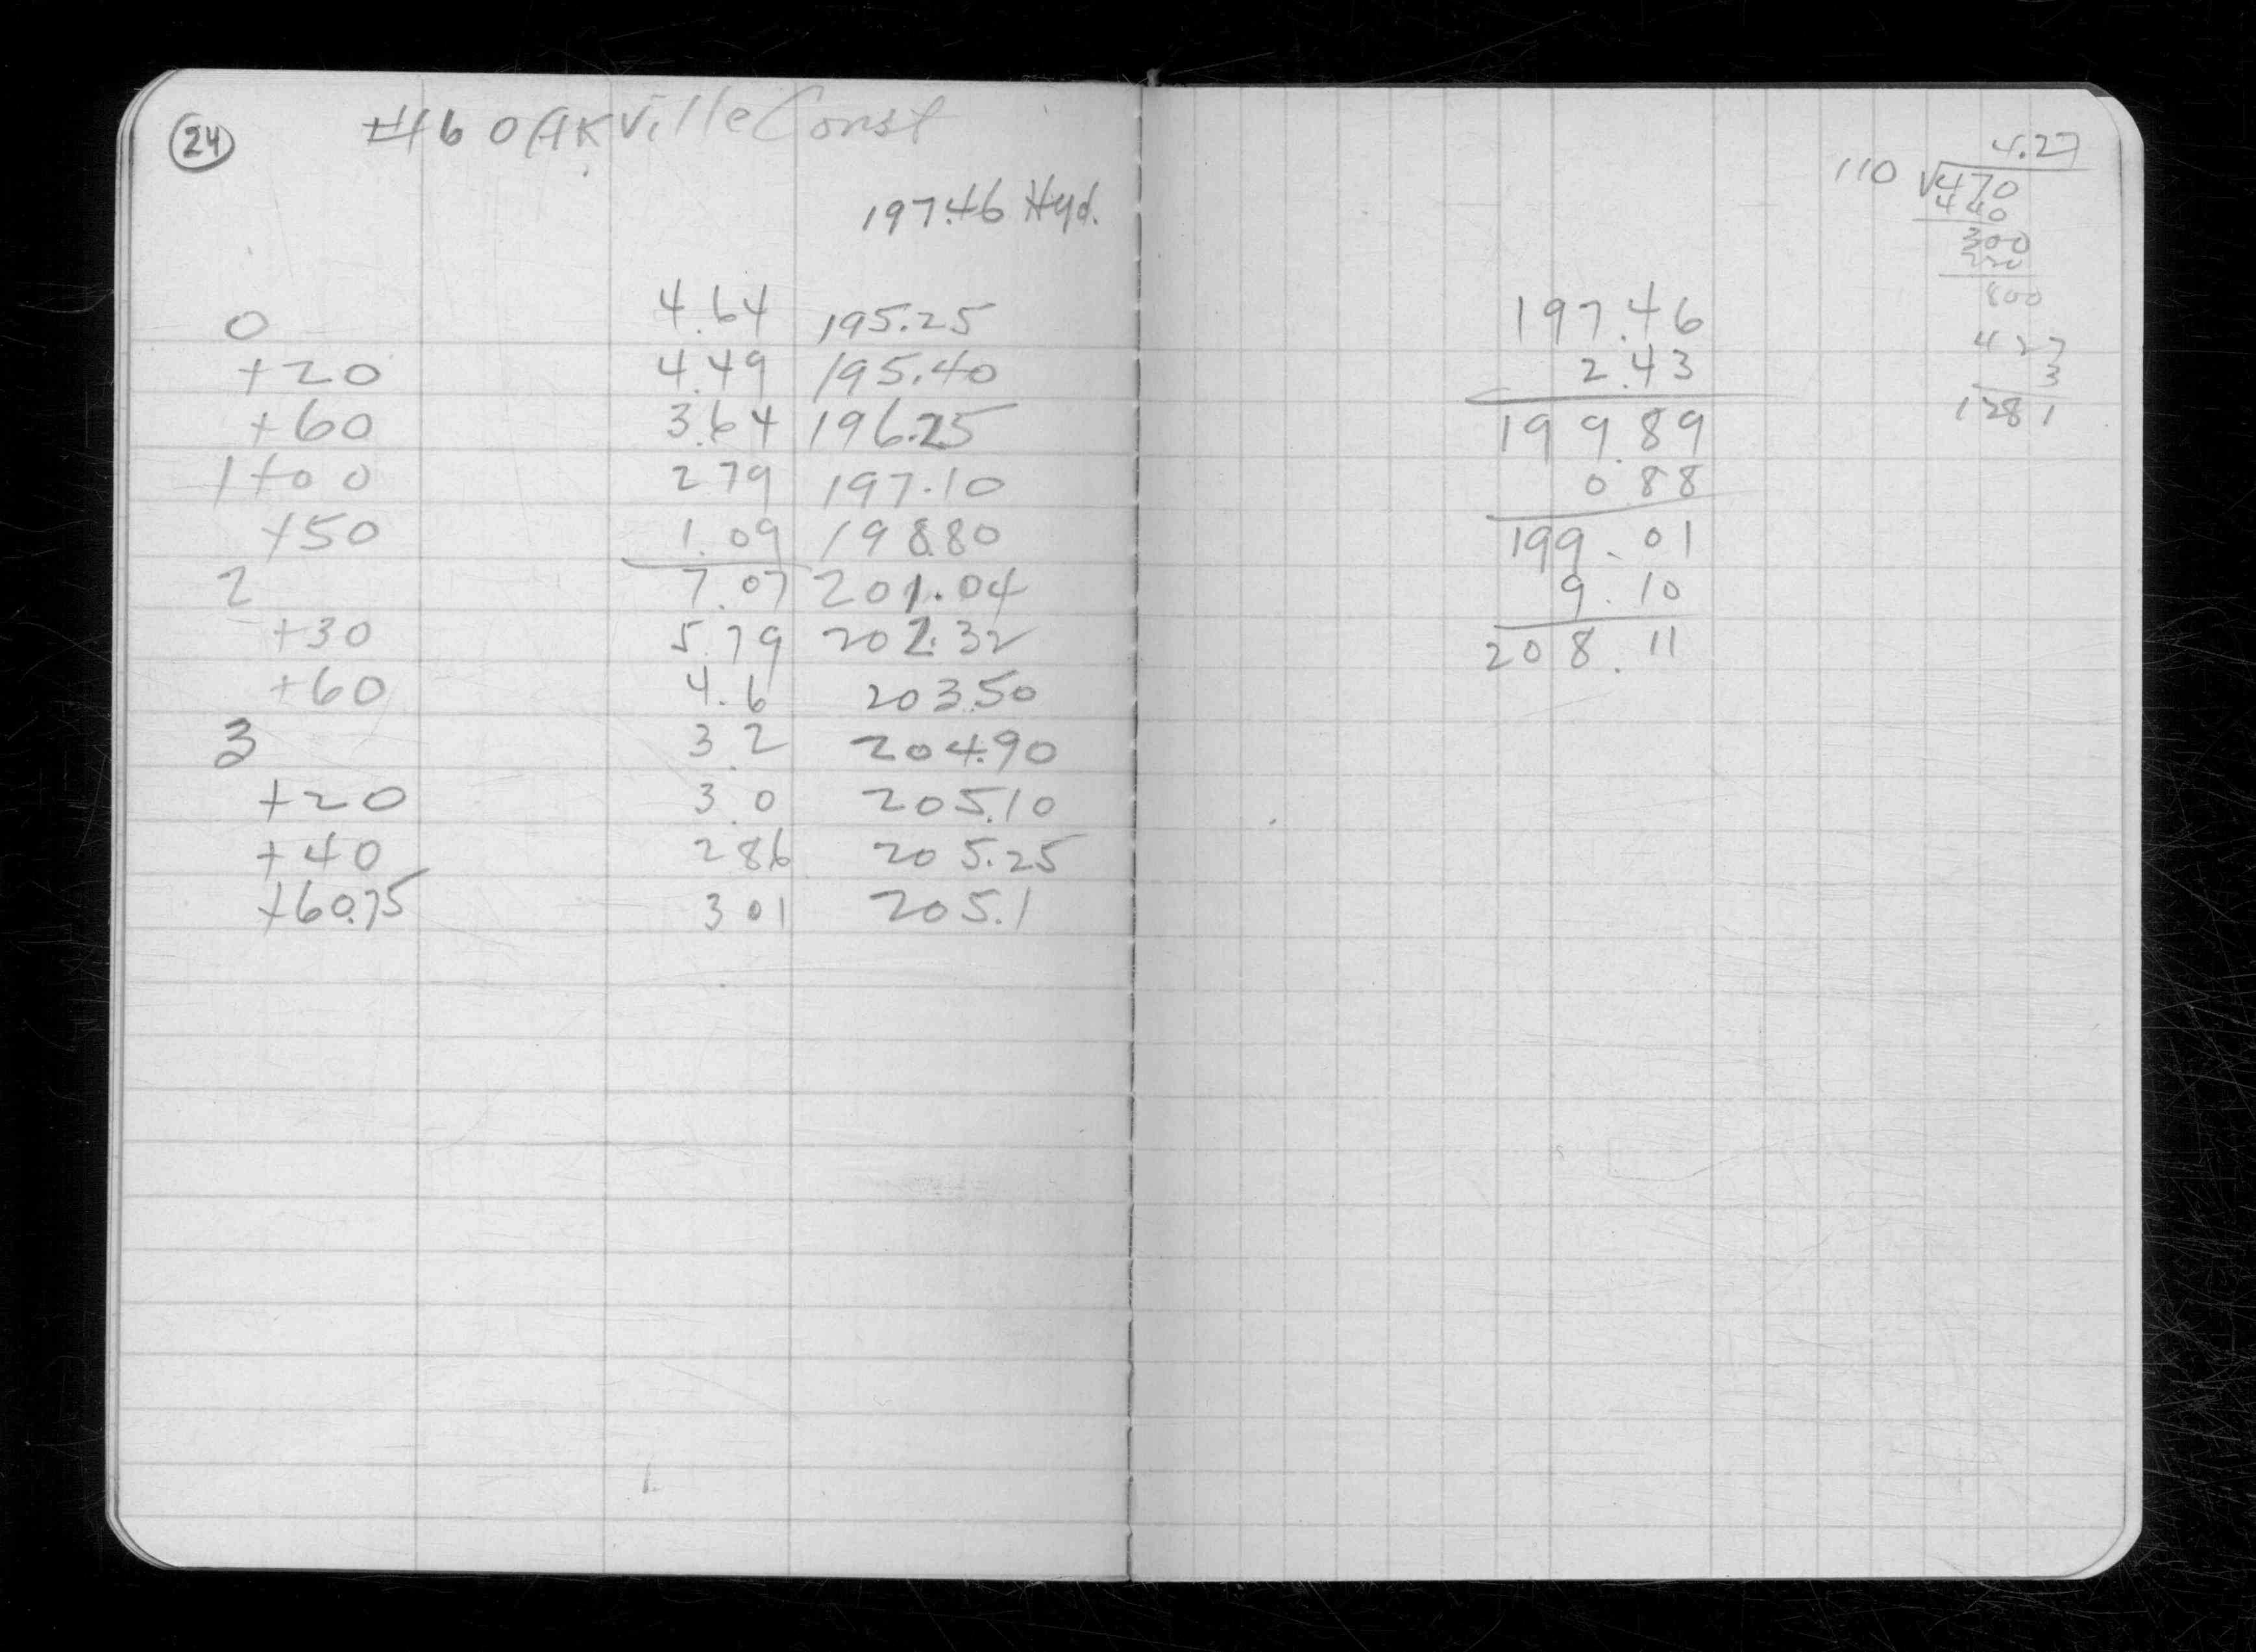 24 #16 OAKville Const
197.46 Hyd.
0 4.64 195.25
+20 4.49 195.40
+60 3.64 196.25
1+00 2.79 197.10
+50 1.09 198.80
2 7.07 201.04
+30 5.79 202.32
+60 4.6 203.50
3 3.2 204.90
+20 3.0 205.10
+40 2.86 205.25
+60.75 3.01 205.1
197.46
2.43
199.89
0.88
199.01
9.10
208.11
4.27
110 √470
440
300
220
800
427
3
1281